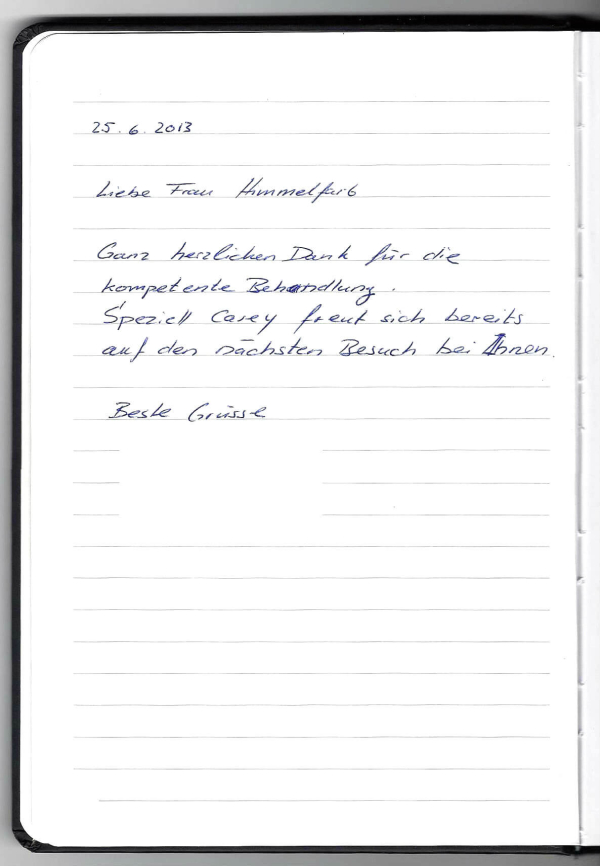 25.6.2013
Liebe Frau Himmelfarb
Ganz herzlichen Dank für die
kompetente Behandlung.
Speziell Casey freut sich bereits
auf den nächsten Besuch bei Ihnen.
Beste Grüsse